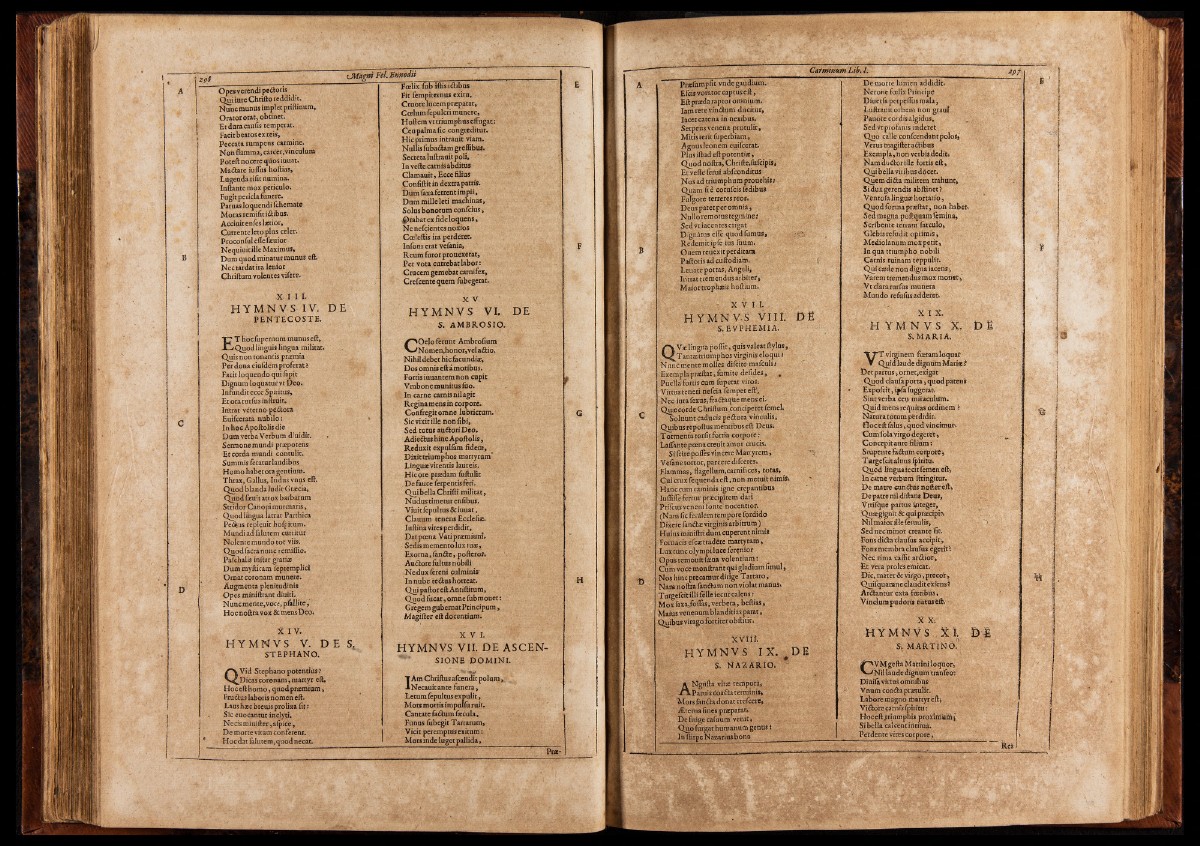 298
Magni Fel. Ennodii
Opes verendi pectoris
Qui iure Christo reddidit.
Nunc munus implet pristinum,
Orator orat, obtinet.
Et dura causis temperat.
Facit beatos ex reis,
Peccata rumpens carmine.
Non flamma, carcer, vinculum
Potest nocere quos iuuat.
Mactare iussus hostias,
Lugenda risit numina.
Instante mox periculo.
Fugit pericla funere.
Paruas loquendi schemate
Moras remisit ictibus.
Accinit enses lætior,
Currente leto plus celer.
Proconsul esse sæuior
Nequiuit ille Maximus,
Dum quod minatur munus est.
Nec tardat ira lenior
Christum volentes visere.
XIII.
HYMNVS IV. DE
PENTECOSTE.
ET hoc supernum munus est,
Quod linguis lingua militat.
Quis non tonantis præmia
Per dona eiusdem proferat?
Facit loquendo qui sapit
Dignum loquatur vt Deo.
Infundit ecce Spiritus,
Et ora rorsus instruit.
Intrat veterno pectora
Euiscerata nubilo:
In hoc Apostolis die
Dum verba Verbum diuidit.
Sermone mundi præpotens
Et corda mundi contulit.
Summus ferarat laudibus
Homo haberet a gentium.
Thrax, Gallus, Indus vnus est.
Quod blanda ludit Græcia,
Quod sæuit atrox barbarum
Stridor Canopi murmuris,
Quod lingua latrat Parthica
Pectus repleuit hospitum.
Mundi ad salutem curritur
Nolente mundo tot viis.
Quod sacra nunc remissio.
Paschalis instar gratiæ
Dum mysticam septemplici
Ornat coronam munere.
Augmenta plenitudinis
Opes ministrant diuiti.
Nunc mente, voce, psallite,
Hoc nostra vox & mens Deo.
XIV.
HYMNVS V. DE S.
STEPHANO.
QVid Stephano potentius?
Dicas coronam, martyr est.
Hoc est homo, quod præmium,
Fructus laboris nomen est.
Laus hæc breuis prolixa fit:
Sic euocantur inclyti.
Necis minister, aspice,
De morte vitam conferent.
Hoc dat salutem, quod necat.
Fœlix sub istis ictibus
Fit sempiternus exitu.
Cruore lucem præparat,
Cœlum sepulcri munere,
Hostem vt triumphus effugat:
Ceu palma sic congreditur.
Hic primus intrauit viam.
Nullis subactam gressibus.
Secreta lustrauit poli,
In veste carnis abditus
Clamauit, Ecce filius
Consistit in dextra patris.
Dum saxa ferrent impii,
Dum mille leti machinas,
Solus bonorum conscius,
Orabat ex fide loquens,
Ne nescientes noxios
Cœlestis ira perderet.
Insons erat vesania,
Reum furor prouexerat,
Per vota currebat labor:
Crucem gemebat carnifex,
Crescente quem subegerat.
XV
HYMNVS VI. DE
S. AMBROSIO.
COelo ferunt Ambrosium
Nomen, honor, vel actio.
Nihil debet hic facundiæ,
Dos omnis est à moribus.
Fortis iuuantem non cupit
Vmbone munitus suo.
In carne carnis nil agit
Regina mens in corpore.
Confregit omne lubricum.
Sic vixit ille non sibi,
Sed totus auctori Deo.
Adiectus hinc Apostolis,
Reduxit expulsam fidem,
Dixit triumphos martyrum
Linguæ virentis laureis.
Hic ore prædam sustulit
De fauce serpentis feri.
Qui bella Christi militat,
Nudus timetur ensibus.
Viuit sepultus & iuuat,
Clauum tenens Ecclesiæ.
Iustina vires perdidit,
Dat pœna Vati præmium.
Sedis memento lux tuæ,
Exorna, sancte, posteros.
Auctore fultus nobili
Ne dux sereni culminis
In nube tectus horreat.
Qui pastor est Antistitum,
Quod sucat, omne submouet:
Gregem gubernat Principum,
Magister est docentium.
XVI.
HYMNVS VII. DE ASCEN-
SIONE DOMINI.
IAm Christus ascendit polum,
Necauit ante funera,
Letum sepultus expulit,
Mors mortis impulsa ruit.
Cantate factum sæcula,
Fonus subegit Tartarum,
Vicit peremptus exitum:
Mors inde luget pallida,
Præ-
Carminum Lib. I.
297
Præsumpsit vnde gaudium.
Edax vorator captus est,
Est præda raptor omnium.
Iam rete vinctum ducitur,
Iacet catena in nexibus.
Serpens venena protulit,
Mitis terit superbiam,
Agnus leonem euiscerat.
Plus illud est potentiæ,
Quod nostra, Christe, suscipis,
Et veste serui absconditus
Nos ad triumphum prouehis:
Quam si è coruscis sedibus
Folgore terreres reos.
Deus pater per omnia,
Nullo remotus tegmine:
Sed vt iacentes erigat
Dignatus esse quod sumus,
Redemit ipse ius suum.
Quem reuexit perditam
Pastoris ad custodiam.
Leuate portas, Angeli,
Intrat tremendus arbiter,
Maior trophæis hostium.
XVII.
HYMNVS VIII. DE
S. EVPHEMIA.
QVæ lingua possit, quis valeat stylus,
Tantæ triumphos virginis eloqui?
Nunc mente molles discite masculi:
Exempla præstat, sumite desides,
Puella fortis cum superat viros.
Virtus teneri nescia semper est,
Nec iura sexus, fractaque mens ei.
Quo corde Christum, conciperet semel,
Soluunt caducis pectora vinculis,
Quibus repostus mentibus est Deus.
Tormenta torsit fortia corpore:
Lassante pœna creuit amor crucis.
Si scire posses vincere Martyrem,
Vesane tortor, parcere disceres.
Flammas, flagellum, carnifices, rotas,
Cui crux sequenda est, non metuit nimis.
Hanc cum caminis igne crepantibus
Iussisset furor præcipitem dari
Priscus veneni fonte nocentior.
(Nam sic feralem tempore sordido
Dixere sancte virginis arbitrum)
Huius ministri dum cuperent nimis
Fornacis escæ tradere martyrem,
Lux tunc olympi luce serenior
Opus remouit sæua volentium:
Cum voce monstrant qui gladium simul,
Nos hinc precamur dirige Tartaro,
Nam nostra sanctum non violat manus.
Turgescit illi felle iecur calens:
Mox saxa, fossas, verbera, bestias,
Maius venenum blanditias parat,
Quibus virago fortiter obstitit.
XVIII.
HYMNVS IX. DE
S. NAZARIO.
ANgusta vitæ tempora,
Paruis coacta terminis,
Mors sancta donat crescere,
Æternus finis præparat.
De fruge casuum venit,
Quo surgat humanum genus:
In stirpe Nazarius bono
De morte lumen addidit.
Nerone fœlix Principe
Diuersa perpessus mala,
Lustrauit orbem non graui
Pauore cordis algidus,
Sed vt profanis traderet
Quo calle conscendant polos,
Verus magister actibus
Exempla, non verbis dedit.
Nam ductor ille fortis est,
Qui bella viribus docet.
Quem dicta militem trahunt,
Si dux gerendis abstinet?
Ventosa linguæ hortatio,
Quod forma præstat, non habet.
Sed magna postquam semina,
Scribente terram sarculo,
Glebis refudit optimis,
Mediolanum mox petit,
In qua triumpho nobili
Carnis ruinam reppulit.
Qui cæde non digna iacens,
Vatem tremendus mox monet,
Vt clara rursus munera
Mundo refusus adderet.
XIX.
HYMNVS X. DE
S. MARIA.
VT virginem fœtam loquar
Quid laude dignum Mariæ?
Det partus, ornet, exigat
Quod clausa porta, quod patens
Exposcit, ipsa suggerat.
Sint verba ceu miraculum.
Quid mens requiras ordinem?
Natura totum perdidit.
Hoc est salus, quod vincimur.
Cum sola virgo degeret,
Concepit aure filium:
Stupente factum corpore,
Turgescit aluus spiritu.
Quod lingua iecit semen est,
In carne verbum stringitur.
De matre cunctus noster est,
De patre nil distans Deus,
Vtrisque partus integer,
Quæ gignit & qui præcipit.
Nil maior ille seruulis,
Sed nec minor creante fit.
Fons dicta clausus accipit,
Fons membra clausus egerit:
Nec rima cassit arctior,
Et vera proles emicat.
Dic, mater & virgo, precor,
Quisquam ne claudit exiens?
Arctantur exta fontibus,
Vinclum pudoris natus est.
XX.
HYMNVS XI. DE
S. MARTINO.
CVM gesta Martini loquor,
Nil laude dignum transeo:
Diuisa virtus omnibus
Vnum coacta prætulit.
Labore magno martyr est,
Victore carnis spiritu:
Hoc est triumphis proximum,
Si bella calcent intima.
Perdente vires corpore,
Res
A
B
C
D
E
F
G
H
A
B
C
D
E
F
G
H